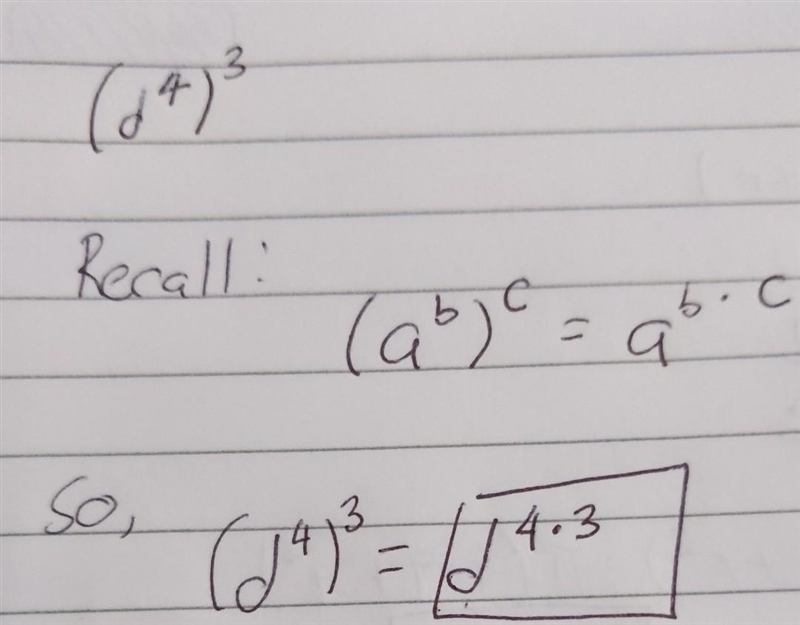 (d⁴)³
Recall:
(a^b)^c = a^(b · c)
So,
(d⁴)³ = d^(4 · 3)